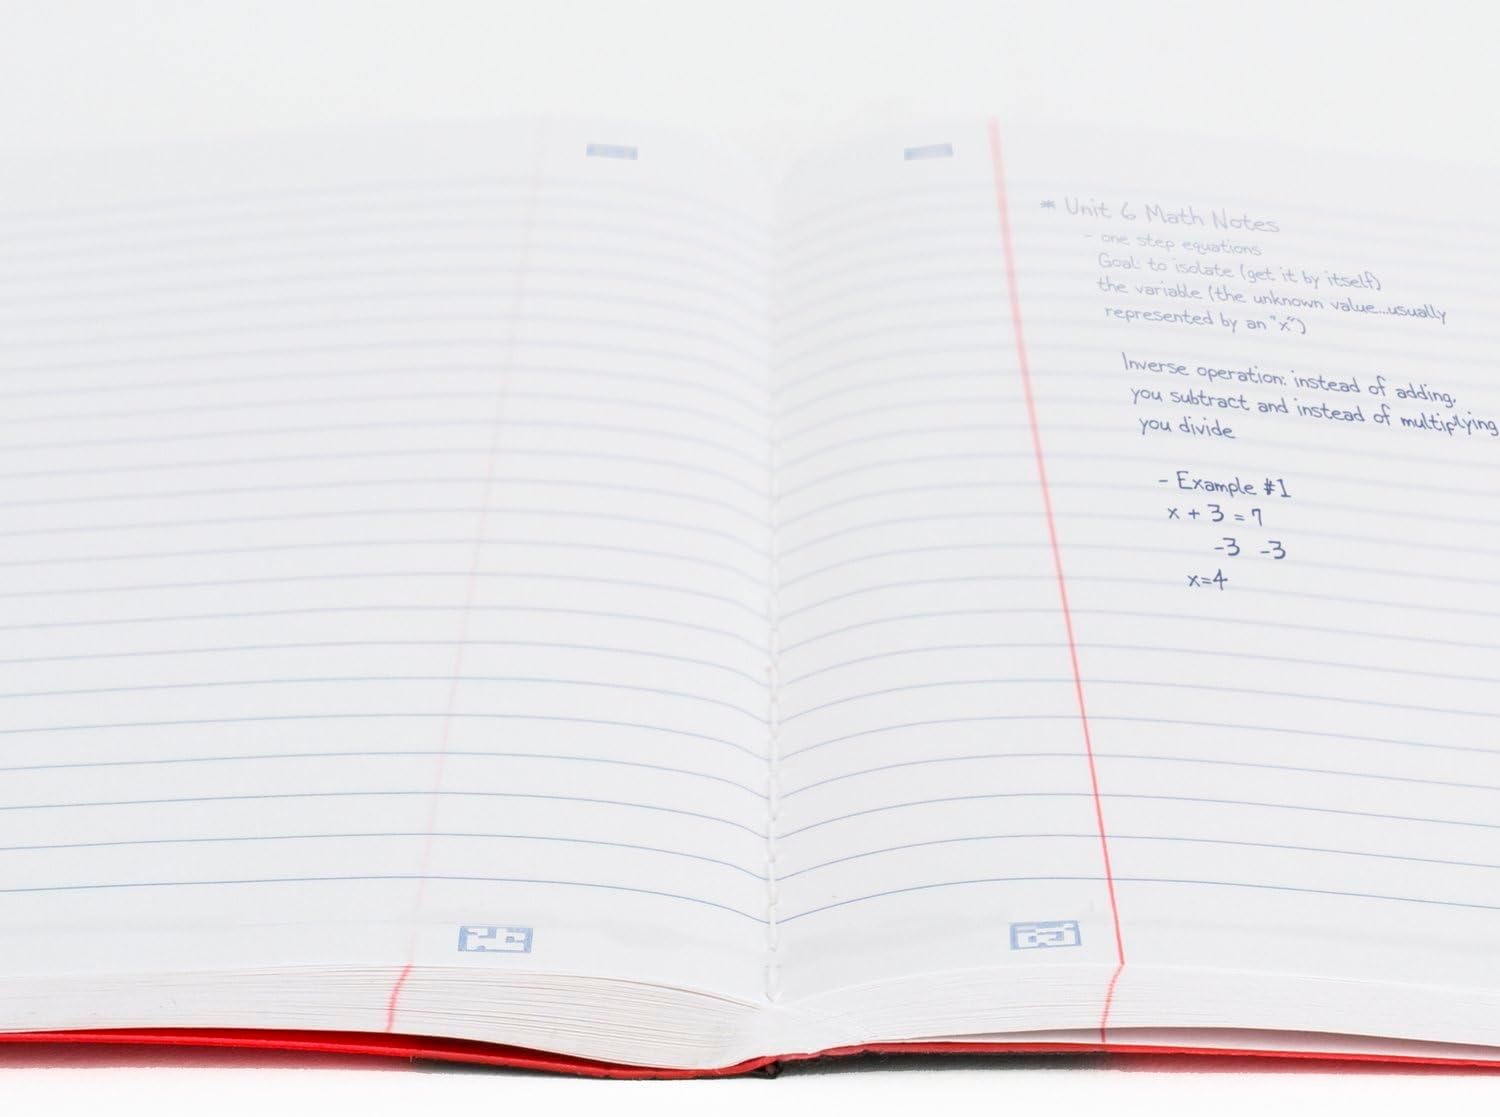 * Unit 6 Math Notes
- one step equations
Goal: to isolate (get it by itself)
the variable (the unknown value...usually
represented by an "x")
Inverse operation: instead of adding,
you subtract and instead of multiplying
you divide
- Example #1
x + 3 = 7
-3 -3
x=4